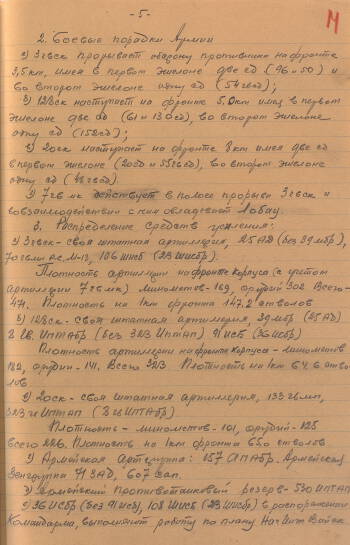 - 5 -
14
2. Боевые порядки Армии
а) 3 гвск прорывает оборону противника на фронте
3,5 км, имея в первом эшелоне две сд (96 и 50) и
во втором эшелоне одну сд (54 гвсд);
б) 12 гвск наступает на фронте 5.0 км имея в первом
эшелоне две сд (61 и 13 сд), во втором эшелоне
одну сд (15 сд);
в) 20 ск наступает на фронте 8 км имея две сд
в первом эшелоне (20 сд и 55 гвсд), во втором эшелоне
одну сд (48 гвсд).
г) 7 гв мк действует в полосе прорыва 3 гвск и
во взаимодействии с ним овладевает Лобау.
3. Распределение средств усиления:
а) 3 гвск - своя штатная артиллерия, 25 АД (без 39 мбр),
70 гвмп РС М-13, 106 ишсб (2 ИШСБР).
Плотность артиллерии на фронте Корпуса (с учетом
артиллерии 7 гв мк) минометов - 169, орудий 302 Всего -
471. Плотность на 1 км фронта 147,2 стволов
б) 12 ск - своя штатная артиллерия, 39 мбр (25 АД)
8 гв. ИПТАБР (без 323 ИПТАП) 91 исб (36 ИСБР)
Плотность артиллерии на фронте корпуса - минометов
182, орудий - 141, Всего 323 Плотность на 1 км 64.6 ство-
лов
в) 20 ск - своя штатная артиллерия, 133 гвмп,
323 гв ИПТАП (8 гв ИПТАБР)
Плотность - минометов - 101, орудий - 125
всего 226. Плотность на 1 км фронта стволов
г) Армейская артгруппа: 157 АПАБР. Армейская
Зенгруппа 71 ЗАД, 607 зап.
д) Армейский противотанковый резерв - 530 ИПТАП
е) 36 ИСБР (без 91 исб), 108 ИШСБ (2 ИШСБР) в распоряжении
Командарма, выполняют работу по плану НачИнжВойск.